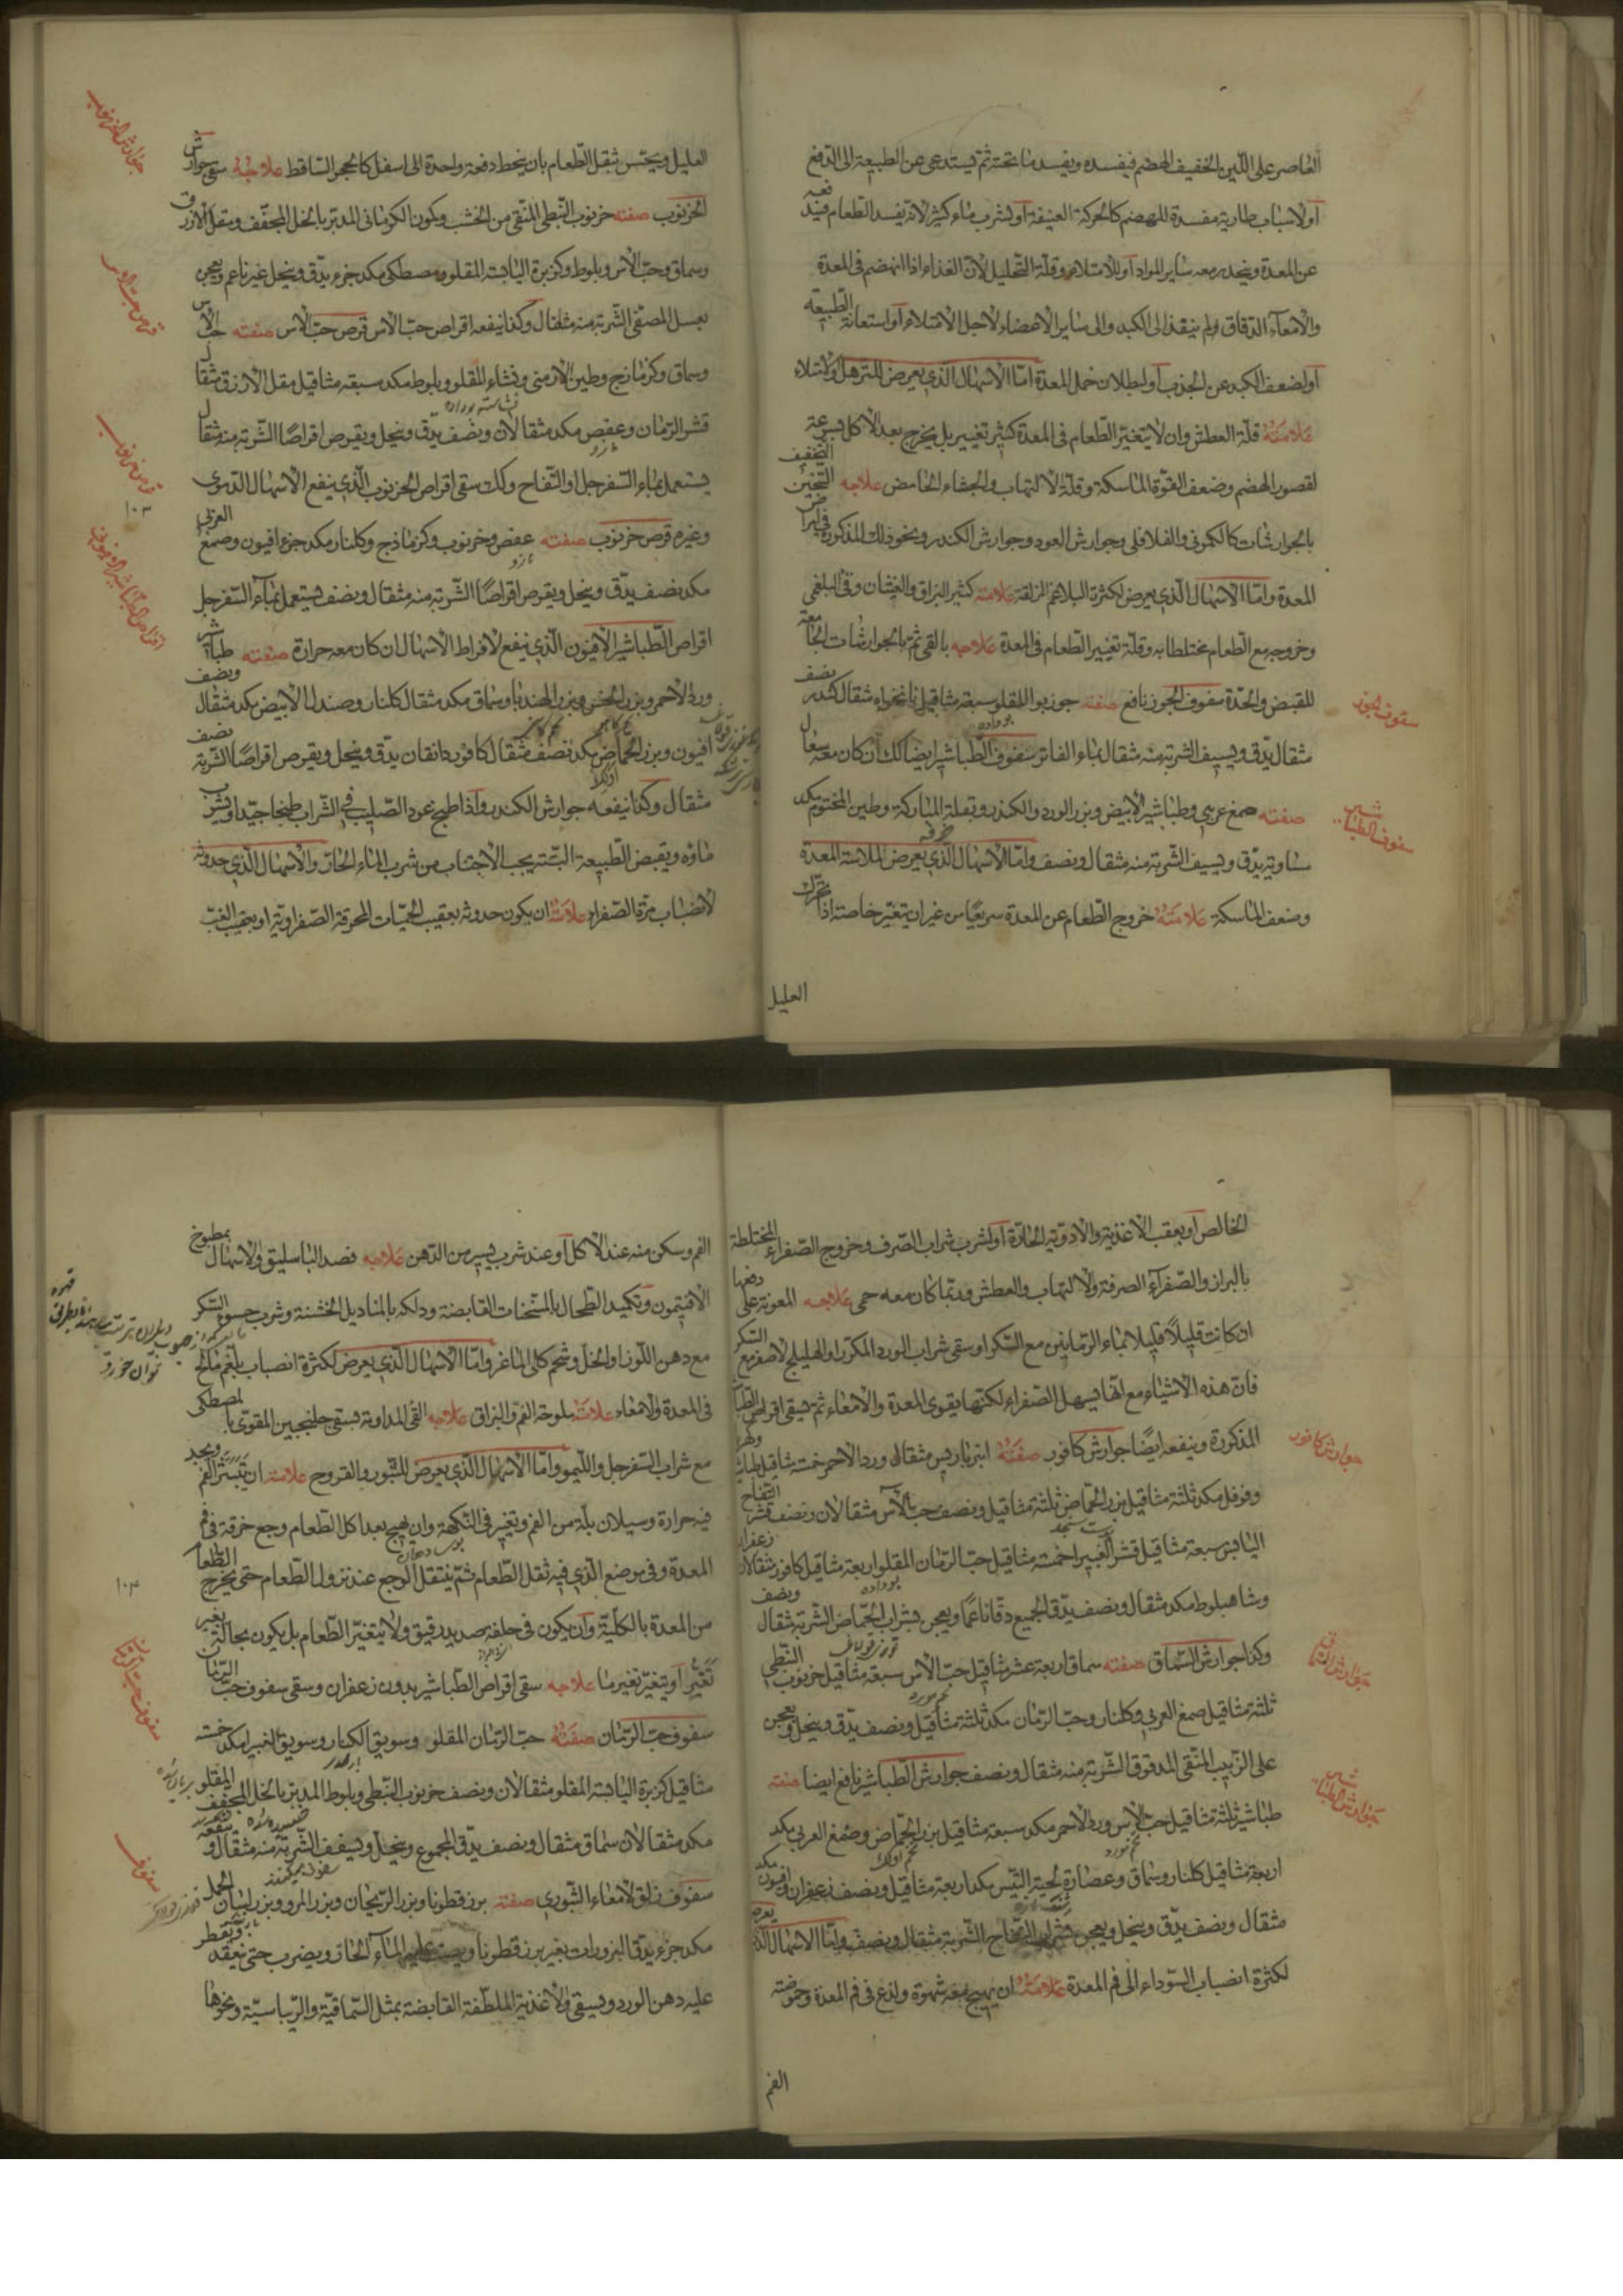 العاصر على اللّين الخفيف الهضم فيفسده ويفسد ما تحته ثم يستدعى عن الطبيعة الى الدفع
أو لاسباب طارية مفسدة للهضم كالحركة العنيفة أو لشرب ماء كثير لانّه يفسد الطعام
عن المعدة وينحدر معه ساير المواد أو للامتلاء وقلّة التحليل لأنّ الغذاء اذا انهضم فى المعدة
والامعاء الدقاق ولم ينفذ الى الكبد والى ساير الاعضاء لاجل الامتلاء أو استعانة الطبيعة
أو لضعف الكبد عن الجذب أو لبطلان خمل المعدة امّا الاسهال الّذى يعرض للترهل والامتلاء
علامته قلّة العطش وان لا يتغيّر الطّعام فى المعدة كثير تغيير بل يخرج بعد الاكل بسرعة
لقصور الهضم وضعف القوّة الماسكة وقلّة الالتهاب والجشاء الحامض علاجه التسخين التجفيف
بالجوارشات كالكمونى والفلافلى وجوارش العود وجوارش الكندر ونحو ذلك المذكورة فى امراض
المعدة وامّا الاسهال الّذى يعرض لكثرة البلاغم المزلقة علامته كثير البزاق والغثيان وقى البلغمى
وخروجه مع الطّعام مختلطا به وقلّة تغيير الطّعام فى المعدة علاجه بالقى ثم بالجوارشات الجامعة
للقبض والحدّة سفوف الجوز نافع صفته جوز بوا المقلو سبعة مثاقيل نانخواه مثقال كندر نصف
مثقال يدّق ويسيف الشربة منه مثقال بماء الفاتر سفوف الطّباشير ايضا لك ان كان معه سعال
صفته صمغ عربى وطباشير الابيض وبزر الورد والكندر وبقلة المباركة وطين المختوم مكد
مساوية يدّق ويسيف الشّربة منه مثقال ونصف وامّا الاسهال الّذى يعرض لملاسة المعدة
وضعف الماسكة علامته خروج الطّعام عن المعدة سريعًا من غير ان يتغيّر خاصّته اذا تحرّك
العليل
سفوف الجوز
سفوف الطباشير
العليل ويحتس بثقل الطّعام بان ينحط دفعة واحدة الى اسفل كالحجر السّاقط علاجه سقى جوارش
الخرنوب صفته خرنوب النّبطى المنقى من الخشب وكمون الكرمانى المدبّر بالخل المجفّف ومقل الازرق
وسماق وحبّ الآس وبلوط وكزبرة اليابسة المقلو ومصطكى مكد جزء يدّق وينخل غير ناعم ويعجن
بعسل المصفّى الشّربة منه مثقال وكذا ينفعه اقراص حبّ الآس قرص حبّ الآس صفته حبّ الآس
وسماق وكزمازج وطين الارمنى ونشاء المقلو وبلوط مكد سبعة مثاقيل مقل الازرق مثقال
قشر الرّمان وعفص مكد مثقالان ونصف يدّق وينخل ويقرص اقراصًا الشّربة منه مثقال
يستعمل بماء السّفرجل او التّفاح وكك سقى اقراص الخرنوب الّذى ينفع الاسهال الدّموى
وغيره قرص خرنوب صفته عفص وخرنوب وكزمازج وكلنار مكد جزء افيون وصمغ العربى
مكد نصف يدّق وينخل ويقرص اقراصًا الشّربة منه مثقال ونصف يستعمل بماء السّفرجل
اقراص الطّباشير الافيون الّذى ينفع لافراط الاسهال ان كان معه حرارة صفته طباشير
ورد الاحمر وبزر الخس وبزر الهندبا وسماق مكد مثقال كلنار وصندل الابيض مكد مثقال ونصف
افيون وبزر الحمّاض مكد نصف مثقال كافور دانقان يدّق وينخل ويقرص اقراصًا الشّربة نصف
مثقال وكذا ينفعه جوارش الكندر واذا طبخ عود الصّليب فى الشّراب طبخا جيّدا ويشرب
ماؤه ويقبض الطّبيعة البتّة يجب الاجتناب من شرب الماء الحارّ والاسهال الّذى حدوثه
لانصباب مرّة الصّفراء علامته ان يكون حدوثه بعقيب الحميّات المحرقة الصّفراويّة او بعقيب الغبّ
جوارش الخرنوب
قرص حب الآس
قرص خرنوب
١٠٣
اقراص الطباشير الافيون
الخالص او بعقب الاغذية والادوية الحادّة أو لشرب شراب الصّرف وخروج الصّفراء المختلطة
بالبراز والصّفراء الصرفة والالتهاب والعطش وربّما كان معه حمى علاجه المعونة على دفعها
ان كانت قليلًا قليلا بماء الرّمانين مع السّكر او سقى شراب الورد المكرّر او الهليلج الاصفر مع السّكر
فانّ هذه الاشياء مع انّها يسهل الصّفراء لكنّها يقوى المعدة والامعاء ثم يسقى اقراص
المذكورة وينفعه ايضًا جوارش كافور صفته انبرباريس مثقال ورد الاحمر خمسة مثاقيل
وفوفل مكد ثلثة مثاقيل بزر الحمّاض ثلثة مثاقيل ونصف حبّ الآس مثقالان ونصف قشر التفاح
اليابس سبعة مثاقيل قشر الغبيرا خمسة مثاقيل حبّ الرّمان المقلو اربعة مثاقيل كافور مثقالان
وشاهبلوط مكد مثقال ونصف يدّق الجميع دقّا ناعمًا ويعجن بشراب الحمّاض الشّربة مثقال ونصف
وكذا جوارش السّماق صفته سماق اربعة عشر مثاقيل حبّ الآس سبعة مثاقيل خرنوب النّبطى
ثلثة مثاقيل صمغ العربى وكلنار وحبّ الرّمان مكد ثلثة مثاقيل ونصف يدّق وينخل ويعجن
على الزّبيب المنقى المدقوق الشّربة منه مثقال ونصف جوارش الطّباشير نافع ايضا صفته
طباشير ثلثة مثاقيل حبّ الآس ورد الاحمر مكد سبعة مثاقيل بزر الحمّاض وصمغ العربى مكد
اربعة مثاقيل كلنار وسماق وعصارة لحية التّيس مكد اربعة مثاقيل ونصف زعفران وافيون مكد
مثقال ونصف يدّق وينخل ويعجن بشراب التّفاح الشّربة مثقال ونصف وامّا الاسهال الّذى يعرض
لكثرة انصباب السّوداء الى فم المعدة علامته ان يهيج معه شهوة ولذع فى فم المعدة وحموضة
الفم
جوارش كافور
جوارش السّماق
جوارش الطباشير
الفم وسكن منه عند الاكل أو عند شرب يسير من الدّهن علاجه فصد الباسليق والاسهال بمطبوخ
الافتيمون وتكميد الطّحال بالمسّخنات القابضة ودلكه بالمناديل الخشنة وشرب حسو السّكر
مع دهن اللّوز او الخلّ وشحم كلى الماعز وامّا الاسهال الّذى يعرض لكثرة انصباب بلغم مالح
فى المعدة والامعاء علامته ملوحة الفم والبزاق علاجه القى المداومة يسقى جلنجبين المقوّى بالمصطكى
مع شراب السّفرجل واللّيمو وامّا الاسهال الّذى يعرض للبّثور والقروح علامته ان تبثر الفم ويجد
فيه حرارة وسيلان بلّة من الفم وتغيير فى النّكهة وان يهيج بعد اكل الطّعام وجع حرقة فى فم
المعدة وفى موضع الّذى فيه ثقل الطّعام ثمّ ينتقل الوجع عند نزول الطّعام حتّى يخرج الطّعام
من المعدة بالكلّية وأن يكون فى خلفه صديد رقيق ولا يتغيّر الطّعام بل يكون بحاله بغير
تغيّر أو يتغيّر تغيرما علاجه سقى اقراص الطّباشير بدون زعفران وسقى سفوف حبّ الرّمان
سفوف حبّ الرّمان صفته حبّ الرّمان المقلو وسويق الكنار وسويق الغبيرا مكد خمسة
مثاقيل كزبرة اليابسة المقلو مثقالان ونصف خرنوب النّبطى وبلوط المدبّر بالخلّ المجفّف المقلو
مكد مثقالان سماق مثقال ونصف يدّق المجموع وينخل ويسيف الشّربة منه مثقال
سفوف زلق الامعاء البّثورى صفته برزقطونا وبزر الرّيحان وبزر المرو وبزر لسان الحمل
مكد جزء يدق البزورات بغير برزقطونا ويصبّ عليها الماء الحارّ ويضرب حتى ويقطر
عليه دهن الورد ويسقى والاغذية الملطّفة القابضة بمثل السّماقيّة والرّيباسيّة ونحوها
١٠٤
سفوف حبّ الرّمان
سفوف